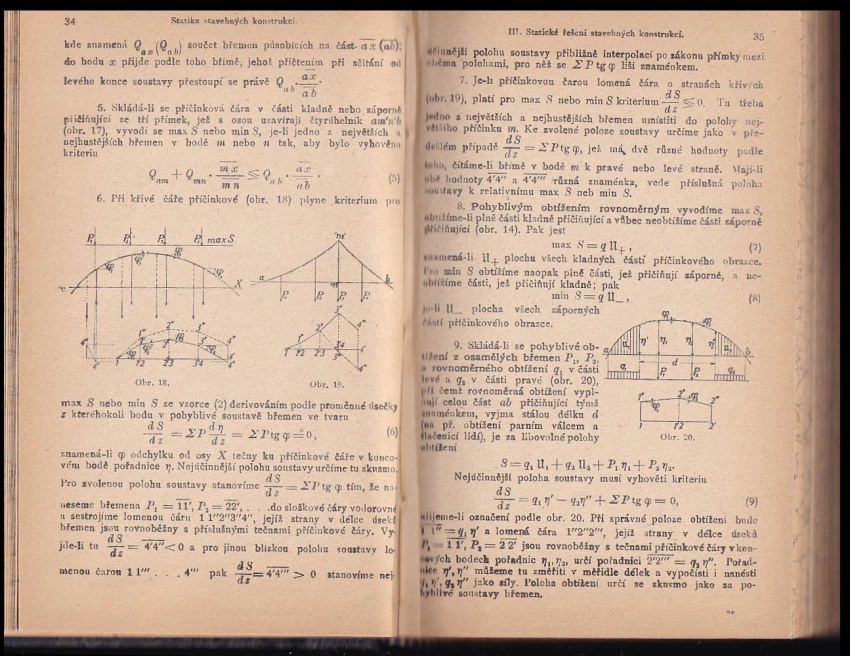 34 Statika stavebných konstrukcí.
kde znamená Q_ax (Q_ab) součet břemen působících na část ax (ab);
do bodu x přijde podle toho břímě, jehož přičtením při sčítání od
levého konce soustavy přestoupí se právě Q_ab · ax/ab.
5. Skládá-li se příčinková čára v části kladně nebo záporně
přičiňující ze tří přímek, jež s osou uzavírají čtyrúhelník am'n'b
(obr. 17), vyvodí se max S nebo min S, je-li jedno z největších a
nejhustějších břemen v bodě m nebo n tak, aby bylo vyhověno
kriteriu
Q_am + Q_mn · mx/mn ≦ Q_ab · ax/ab. (5)
6. Při křivé čáře příčinkové (obr. 18) plyne kriterium pro
max S
X
a b
Obr. 18. Obr. 19.
max S nebo min S ze vzorce (2) derivováním podle proměnné úsečky
z kteréhokoli bodu v pohyblivé soustavě břemen ve tvaru
dS/dz = ΣP dη/dz = ΣP tg φ = 0, (6)
znamená-li φ odchylku od osy X tečny ku příčinkové čáře v konco-
vém bodě pořadnice η. Nejúčinnější polohu soustavy určíme tu zkusmo.
Pro zvolenou polohu soustavy stanovíme dS/dz = ΣP tg φ tím, že na-
neseme břemena P₁ = 11', P₂ = 22', . . . do složkové čáry vodorovné
a sestrojíme lomenou čáru 1 1''2''3''4'', jejíž strany v délce úseků
břemen jsou rovnoběžny s příslušnými tečnami příčinkové čáry. Vy-
jde-li tu dS/dz = 4'4'' < 0 a pro jinou blízkou polohu soustavy lo-
menou čarou 1 1''' . . . . 4''' pak dS/dz = 4'4''' > 0 stanovíme nej-
III. Statické řešení stavebných konstrukcí. 35
účinnější polohu soustavy přibližně interpolací po zákonu přímky mezi
oběma polohami, pro něž se ΣP tg φ liší znaménkem.
7. Je-li příčinkovou čarou lomená čára o stranách křivých
(obr. 19), platí pro max S nebo min S kriterium dS/dz ≦ 0. Tu třeba
jedno z největších a nejhustějších břemen umístiti do polohy nej-
většího příčinku m. Ke zvolené poloze soustavy určíme jako v pře-
dešlém případě dS/dz = ΣP tg φ, jež má dvě různé hodnoty podle
toho, čítáme-li břímě v bodě m k pravé nebo levé straně. Mají-li
obě hodnoty 4'4'' a 4'4''' různá znaménka, vede příslušná poloha
soustavy k relativnímu max S neb min S.
8. Pohyblivým obtížením rovnoměrným vyvodíme max S,
obtížíme-li plně části kladně přičiňující a vůbec neobtížíme části záporně
přičiňující (obr. 14). Pak jest
max S = q U₊ , (7)
znamená-li U₊ plochu všech kladných částí příčinkového obrazce.
Pro min S obtížíme naopak plně části, jež přičiňují záporně, a ne-
obtížíme části, jež přičiňují kladně; pak
min S = q U₋, (8)
je-li U₋ plocha všech záporných
částí příčinkového obrazce.
9. Skládá-li se pohyblivé ob-
tížení z osamělých břemen P₁, P₂,
a rovnoměrného obtížení q₁ v části
levé a q₂ v části pravé (obr. 20),
při čemž rovnoměrná obtížení vypl-
ňují celou část ab přičiňující týmž
znaménkem, vyjma stálou délku d
(na př. obtížení parním válcem a
tlačenicí lidí), je za libovolné polohy
obtížení
a d b
Obr. 20.
S = q₁ U₁ + q₂ U₂ + P₁ η₁ + P₂ η₂.
Nejúčinnější poloha soustavy musí vyhověti kriteriu
dS/dz = q₁ η' − q₂η'' + ΣP tg φ = 0, (9)
užijeme-li označení podle obr. 20. Při správné poloze obtížení bude
1 1'' = q₁ η' a lomená čára 1''2''2''', jejíž strany v délce úseků
P₁ = 1 1', P₂ = 2 2' jsou rovnoběžny s tečnami příčinkové čáry v kon-
cových bodech pořadnic η₁, η₂, určí pořadnici 2'2''' = q₂ η''. Pořad-
nice η', η'' můžeme tu změřiti v měřidle délek a vypočísti i nanésti
q₁ η', q₂ η'' jako síly. Poloha obtížení určí se zkusmo jako za po-
hyblivé soustavy břemen.